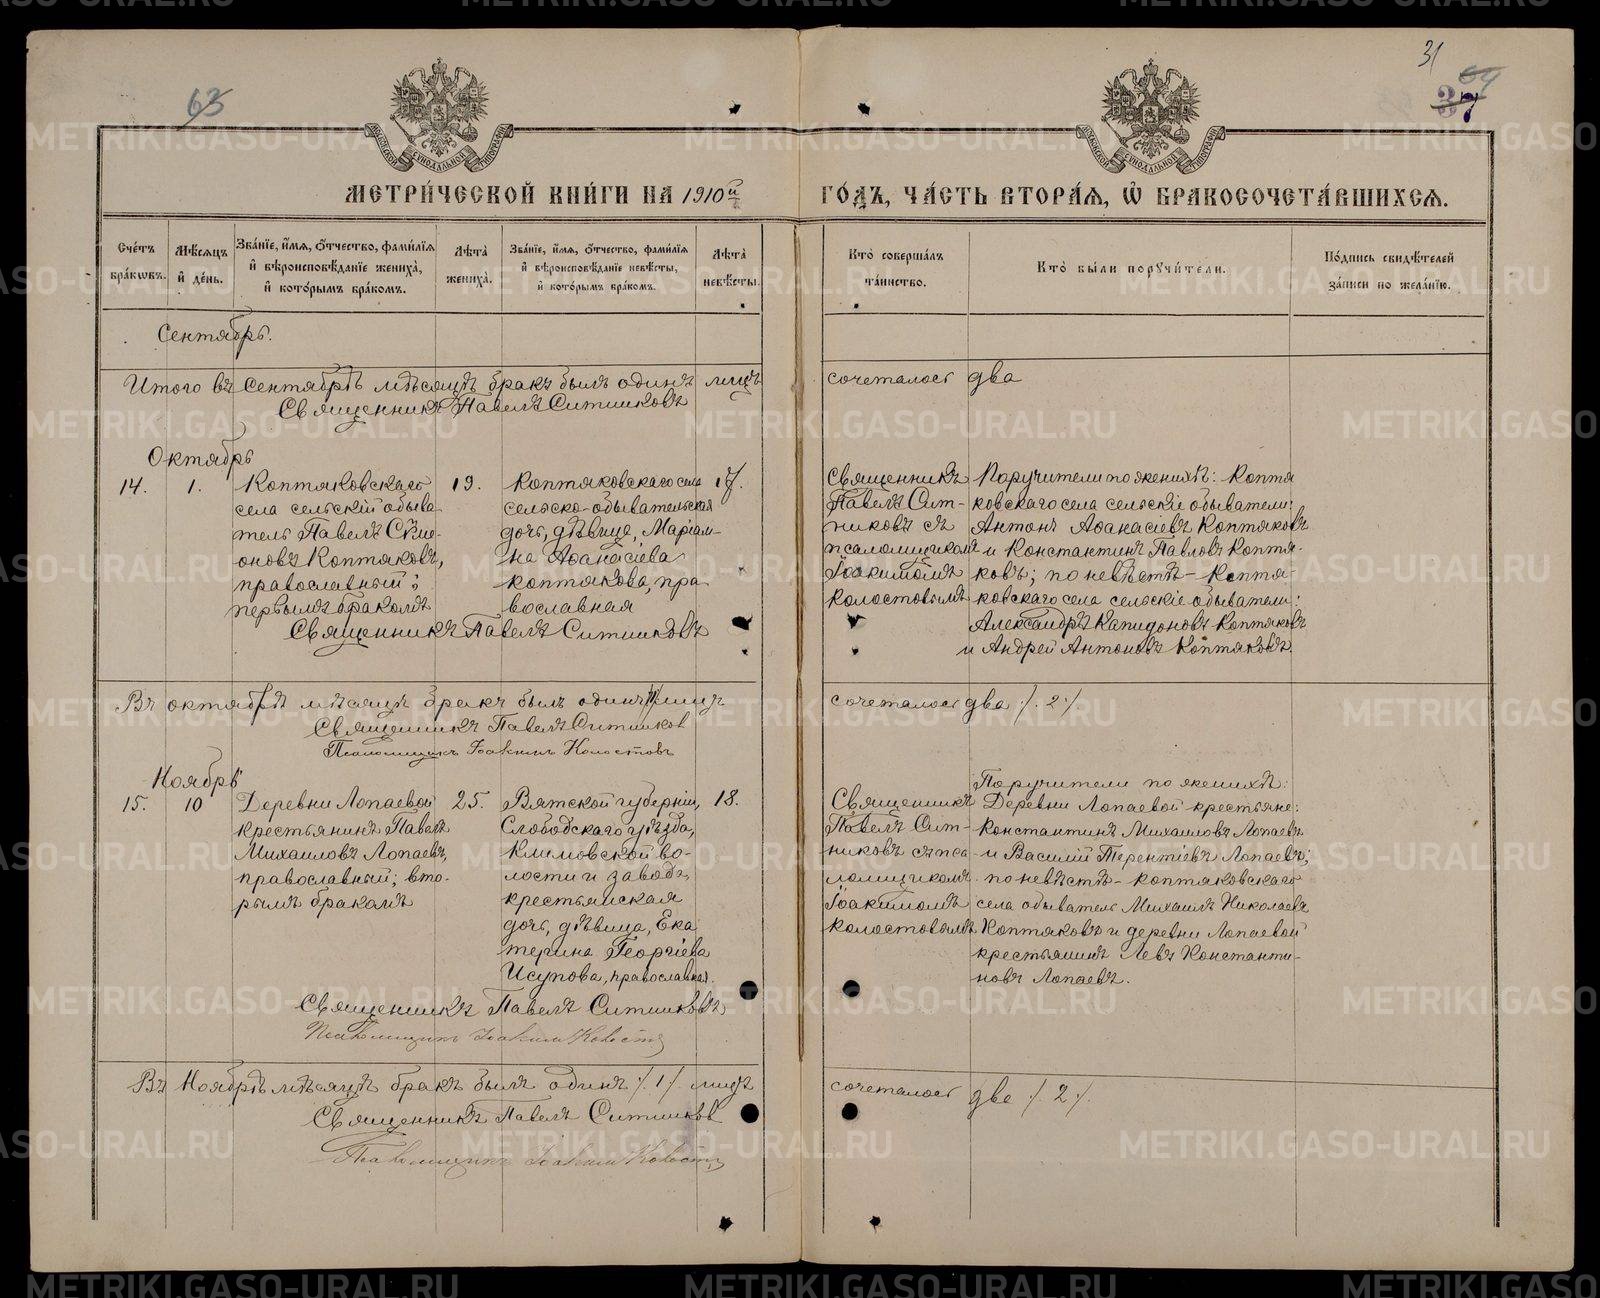 31
63
64
37
МЕТРИ́ЧЕСКОЙ КНИ́ГИ НА 1910й ГО́ДЪ, ЧА́СТЬ ВТОРА́Я, Ѡ БРАКОСОЧЕТА́ВШИХСЯ.
Сче́тъ бра́кωвъ.
Мѣ́сяцъ и де́нь.
Зва́нїе, и́мя, о́тчество, фами́лїя и вѣроисповѣ́данїе жениха̀, и кото́рымъ бра́комъ.
Лѣ́та жениха̀.
Зва́нїе, и́мя, о́тчество, фами́лїя и вѣроисповѣ́данїе невѣ́сты, и кото́рымъ бра́комъ.
Лѣ́та невѣ́сты.
Кто̀ соверша́лъ та́инство.
Кто̀ бы́ли порꙋчи́тели.
По́дпись свидѣ́телей за́писи по жела́нїю.
Сентябрь.
Итого въ Сентябрѣ мѣсяцѣ бракъ былъ одинъ лицъ сочеталось два
Священникъ Павелъ Ситниковъ
Октябрь
14.
1.
Коптяковскаго
села сельскій обыва-
тель Павелъ Симе-
оновъ Коптяковъ,
православный;
первымъ бракомъ
19.
Коптяковскаго села
сельско-обывательская
дочь, дѣвица, Маріам-
на Аѳанасіева
Коптякова, пра-
вославная
17.
Священникъ
Павелъ Сит-
никовъ съ
псаломщикомъ
Іоакимомъ
Холостовымъ
Поручители по женихѣ: Коптя-
ковскаго села сельскіе обыватели:
Антонъ Аѳанасіевъ Коптяковъ
и Константинъ Павловъ Коптя-
ковъ; по невѣстѣ – Коптя-
ковскаго села сельскіе обыватели:
Александръ Капидоновъ Коптяковъ
и Андрей Антоновъ Коптяковъ.
Священникъ Павелъ Ситниковъ
Въ октябрѣ мѣсяцѣ бракъ былъ одинъ /1/ лицъ сочеталось два /. 2 /.
Священникъ Павелъ Ситников
Псаломщикъ Іоакимъ Холостовъ
Ноябрь
15.
10
Деревни Лопаевой
крестьянинъ Павелъ
Михаиловъ Лопаевъ,
православный; вто-
рымъ бракомъ
25.
Вятской губерніи,
Слободскаго уѣзда,
Климовской во-
лости и завода,
крестьянская
дочь, дѣвица, Ека-
терина Георгіева
Исупова, православная.
18.
Священникъ
Павелъ Сит-
никовъ съ пса-
ломщикомъ
Іоакимомъ
Холостовымъ
Поручители по женихѣ:
Деревни Лопаевой крестьяне:
Константинъ Михаиловъ Лопаевъ
и Василій Терентіевъ Лопаевъ;
по невѣстѣ – Коптяковскаго
села обыватель Михаилъ Николаевъ
Коптяковъ и деревни Лопаевой
крестьянинъ Левъ Константи-
новъ Лопаевъ.
Священникъ Павелъ Ситниковъ
Псаломщикъ Іоакимъ Холостовъ
Въ Ноябрѣ мѣсяцѣ бракъ былъ одинъ /. 1 /. лицъ сочеталось две /. 2 /.
Священникъ Павелъ Ситников
Псаломщикъ Іоакимъ Холостовъ
METRIKI.GASO-URAL.RU